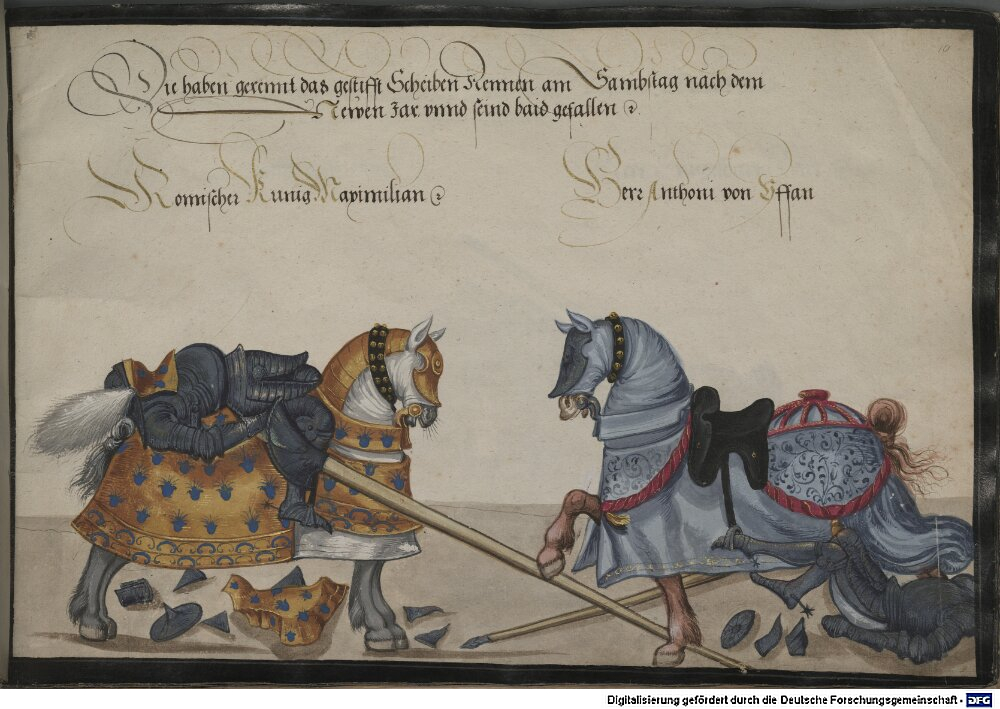 Die haben gerennt das gestifft Scheiben Rennen am Sambstag nach dem
Newen Jar vnnd seind baid gefallen
Romischer Kunig Maximilian
Herr Anthoni von Yffan
10
Digitalisierung gefördert durch die Deutsche Forschungsgemeinschaft - DFG